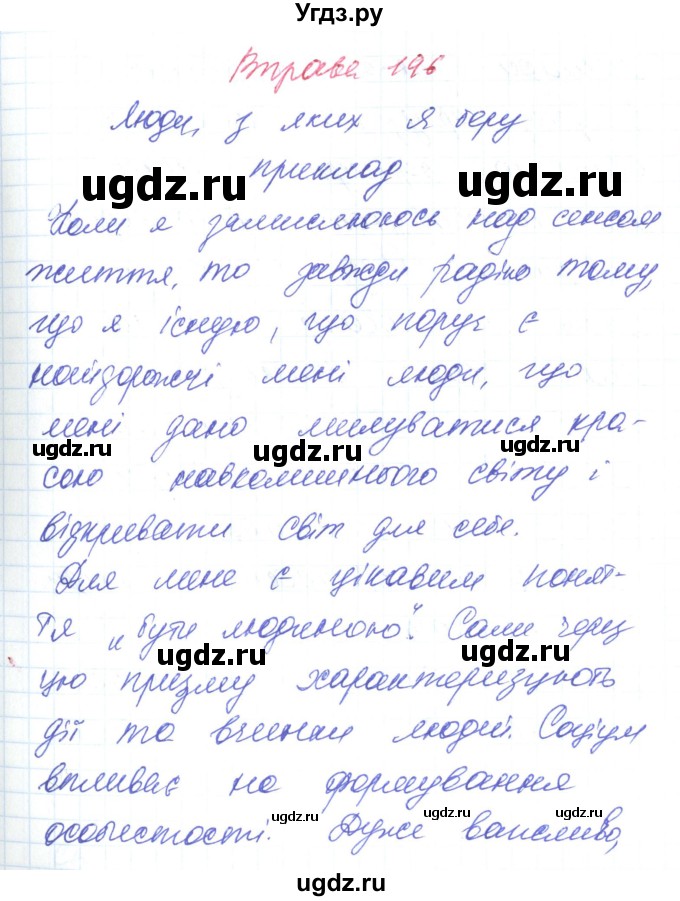 Угдз.ру
Вправа 196
Люди, з яких я беру
приклад
ugdz.ru ugdz.ru
Коли я замислююсь над сенсом
життя, то завжди радію тому,
що я існую, що поруч є
найдорожчі мені люди, що
мені дано милуватися кра-
ugdz.ru ugdz.ru
сою навколишнього світу і
відкривати світ для себе.
Для мене є цікавим понят-
тя „бути людиною". Саме через
ugdz.ru ugdz.ru
цю призму характеризують
дії та вчинки людей. Соціум
впливає на формування
ugdz.ru ugdz.ru
особистості. Дуже важливо,
ugdz.ru